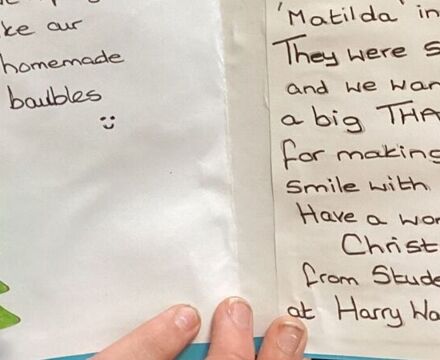 ke our
homemade
baubles
'Matilda' in
They were s
and we wan
a big THA
for making
smile with
Have a wo
Christ
from Stude
at Harry Wa